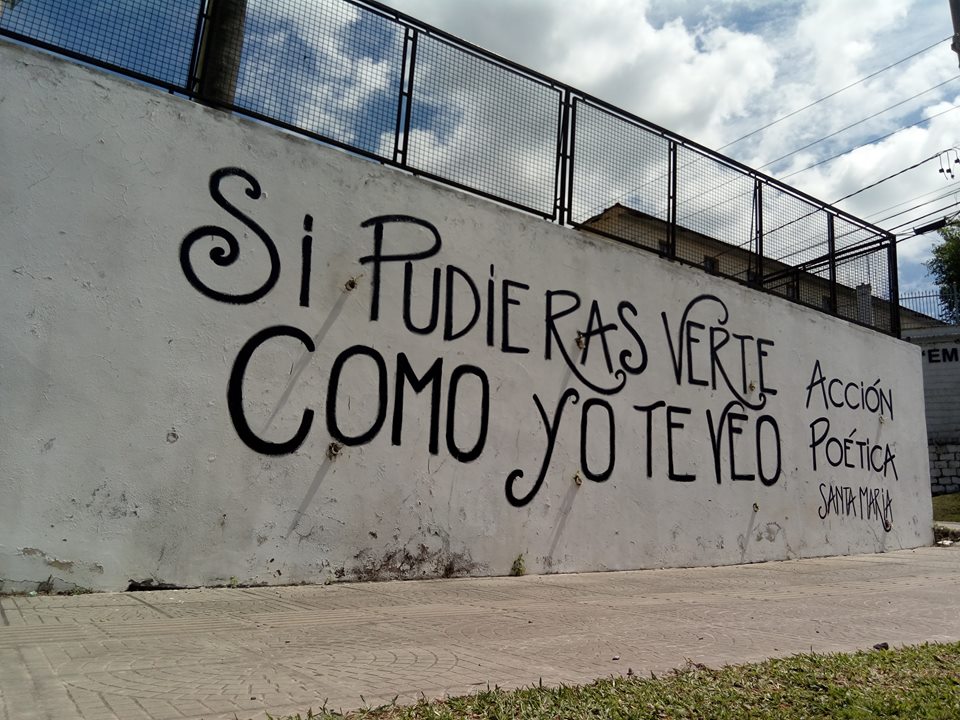 Si PUDiERAS VERTE
COMO yO TE VEO
Acción
Poética
SANTA MARIA
"EM